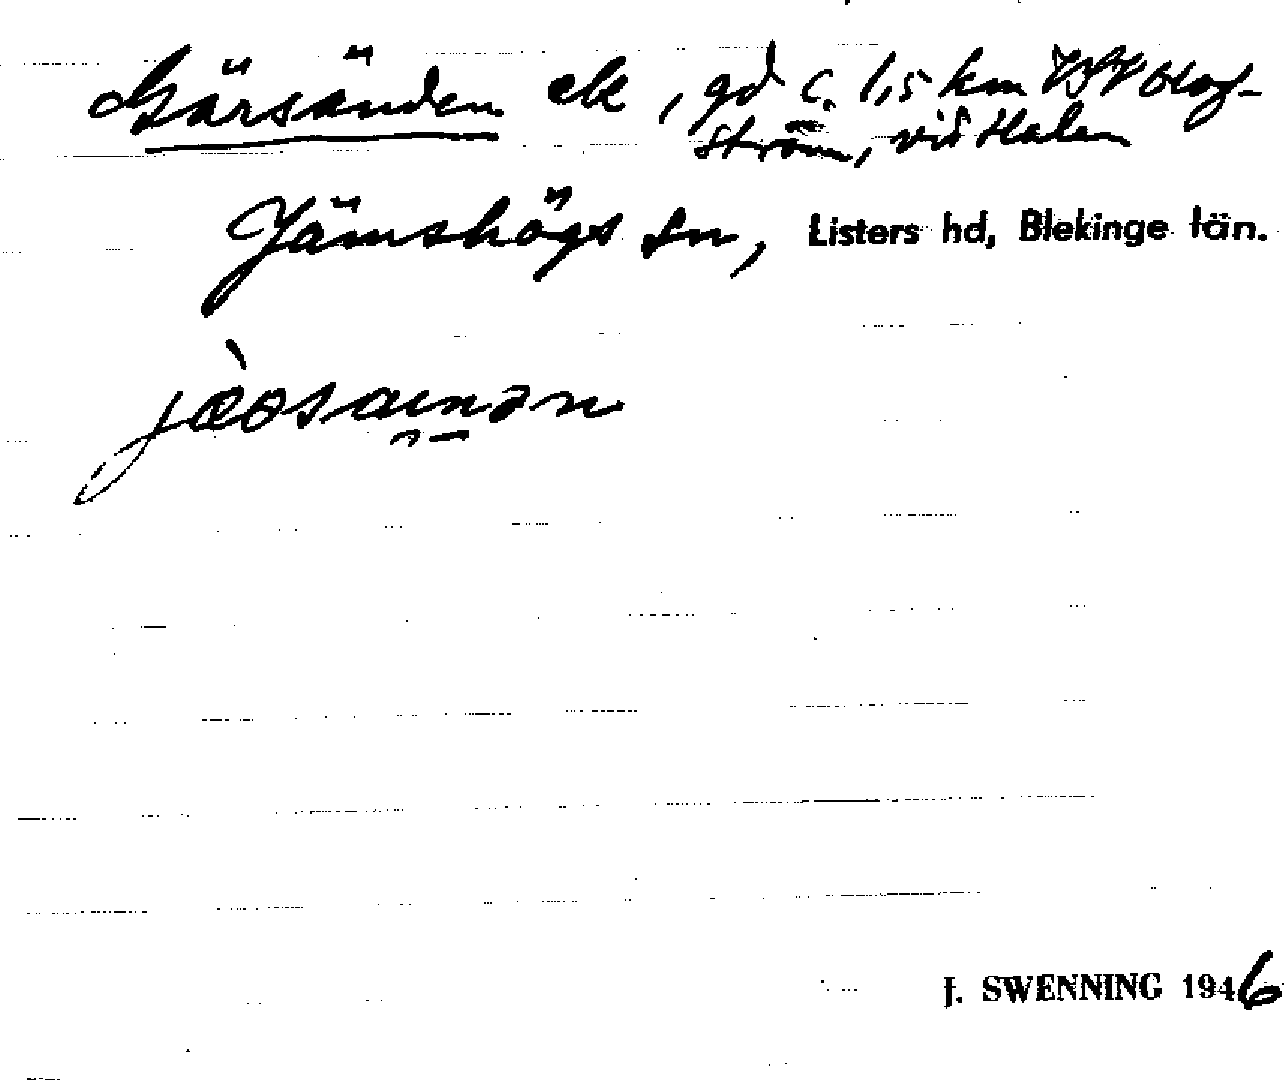 Gärsänden ek, gd c. 1,5 km VSV Olof-
ström, vid Halen
Jämshögs sn, Listers hd, Blekinge län.
J. SWENNING 1946